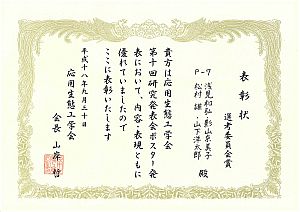 表彰状
選考委員会賞
P-7 浅見和弘・影山奈美子
松村 健・山下洋太郎 殿
貴方は応用生態工学会
第十回研究発表会ポスター発
表において、内容・表現ともに
優れていましたので
ここに表彰いたします
平成十八年九月三十日
応用生態工学会
会長 山岸 哲